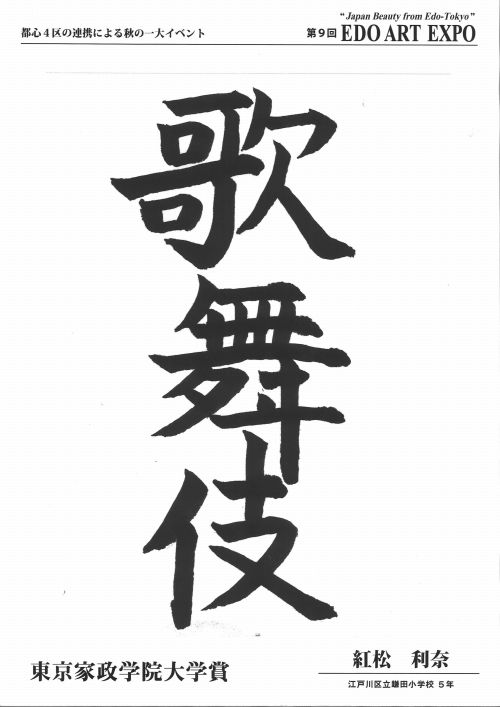 都心4区の連携による秋の一大イベント
"Japan Beauty from Edo-Tokyo"
第9回 EDO ART EXPO
歌舞伎
東京家政学院大学賞
紅松 利奈
江戸川区立鎌田小学校 5年